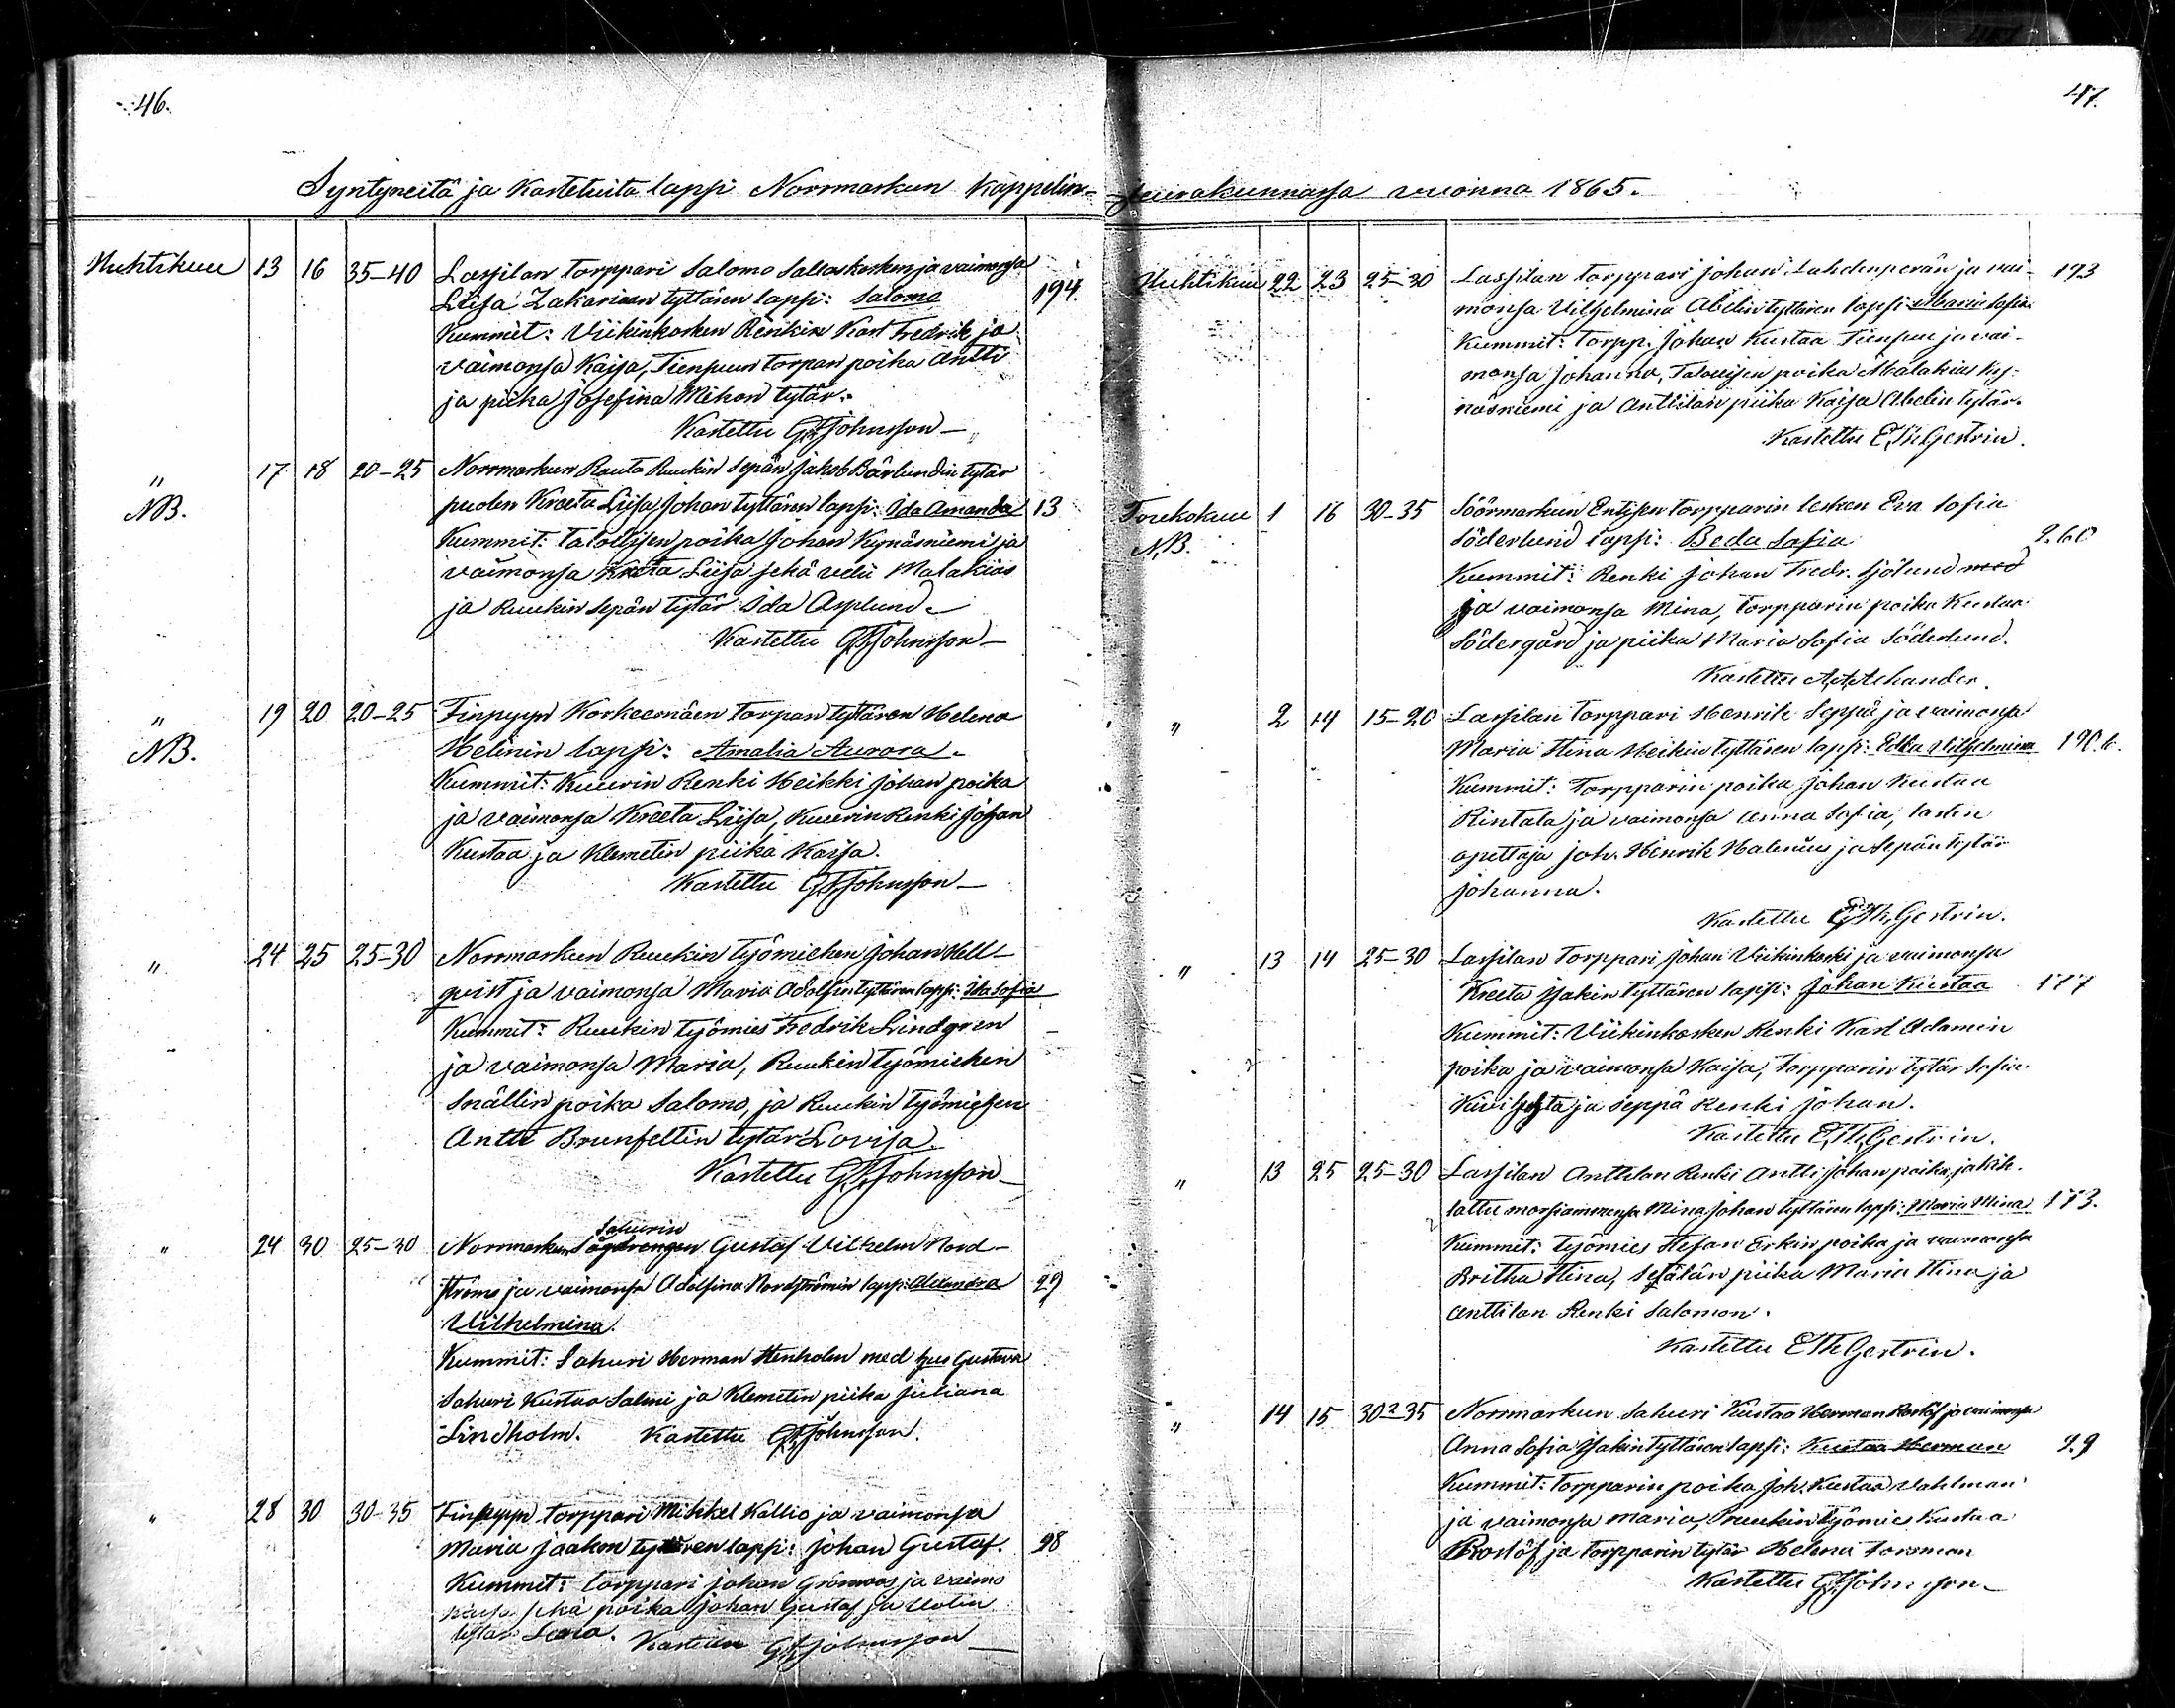 46.
Syntyneitä ja Kastetuita lapsi Norrmarkun Kappelin-
Huhtikuu 13 16 35-40 Lassilan torppari Salomo Sallaskosken ja vaimonsa
Liisa Zakariaan tyttären lapsi: Salomo 194.
Kummit: Viikinkosken Renkin Karl Fredrik ja
vaimonsa Kaisa, Tienpuun torpan poika Antti
ja piika Josefina Mikon tytär.
Kastettu G.F.Johnsson
" 17 18 20-25 Norrmarkun Rauta Ruukin Sepän Jakob Bärlundin tytär
NB. puolen Kreeta Liisa Johan tyttären lapsi: Ida Amanda 13
Kummit: talollisen poika Johan Kynäsniemi ja
vaimonsa Kreeta Liisa sekä veli Malakias
ja Ruukin Sepän tytär Ida Asplund
Kastettu G.F.Johnsson
" 19 20 20-25 Finpyyn Korkeemäen torpan tytären Helena
NB. Helinin lapsi: Amalia Aurora.
Kummit: Kuuvin Renki Heikki Johan poika
ja vaimonsa Kreeta Liisa, Kuuvin Renki Johan
Kustaa ja Klemetin piika Kaisa.
Kastettu G.F.Johnsson
" 24 25 25-30 Norrmarkun Ruukin työmiehen Johan Hell-
qvist ja vaimonsa Maria Adolfin tyttären lapsi: Ida Sofia
Kummit: Ruukin työmies Fredrik Lindgren
ja vaimonsa Maria, Ruukin työmiehen
Snällin poika Salomo, ja Ruukin työmiehen
Antti Brunfeltin tytär Lovisa.
Kastettu G.F.Johnsson
Sahurin
" 24 30 25-30 Norrmarkun Sågdrengen Gustaf Vilhelm Nord-
ströms ja vaimonsa Adolfina Nordströmin lapsi: Alexandra 29
Vilhelmina.
Kummit: Sahuri Herman Stenholm med hus Gustava
Sahuri Kustaa Salmi ja Klemetin piika Juliana
Lindholm. Kastettu G.F.Johnsson.
" 28 30 30-35 Finpyyn torppari Mikkel Kallio ja vaimonsa
Maria Jaakon tyttären lapsi: Johan Gustaf. 98
Kummit: torppari Johan Grönroos ja vaimo
sekä poika Johan Gustaf ja
tytär Kastettu G.F.Johnsson
47.
Seurakunnassa vuonna 1865.
Huhtikuu 22 23 25-30 Lassilan torppari Johan Lahdenperän ja vai- 193
monsa Vilhelmina Abelin tyttären lapsi: Maria Sofia
Kummit: torpp. Johan Kustaa Tienpuu ja vai-
monsa Johanna, Talollisen poika Malakias Ky-
näsniemi ja Anttilan piika Kaisa Abelin tytär.
Kastettu E.Th.Gestrin.
Toukokuu 1 16 30-35 Söörmarkun Entisen torpparin lesken Eva Sofia
NB. Söderlund lapsi: Beda Sofia 260
Kummit: Renki Johan Fredr. Sjölund med
ja vaimonsa Mina, torpparin poika Kustaa
Södergård ja piika Maria Sofia Söderlund.
Kastettu
" 2 14 15-20 Lassilan torppari Henrik Seppä ja vaimonsa
Maria Stina Heikin tyttären lapsi: Edla Vilhelmina
Kummit: Torpparin poika Johan Kustaa
Rintala ja vaimonsa Anna Sofia, lasten
opettaja Joh. Henrik Halenius ja Sepän tytär
Johanna.
Kastettu E.Th.Gestrin.
" 13 14 25-30 Lassilan torppari Johan Viikinkoski ja vaimonsa
Kreeta Isakin tyttären lapsi: Johan Kustaa 177
Kummit: Viikinkosken Renki Karl Adamin
poika ja vaimonsa Kaisa, torpparin tytär Sofia
ja Seppä Renki Johan.
Kastettu E.Th.Gestrin.
" 13 25 25-30 Lassilan Anttilan Renki Antti Johan poika ja kih-
lattu morsiamensa Mina Johan tyttären lapsi: Maria Mina 173.
Kummit: Työmies Stefan Erkin poika ja vaimonsa
Britha Stina, Setälän piika Maria Stina ja
Anttilan Renki Salomon.
Kastettu E.Th.Gestrin.
" 14 15 30-35 Norrmarkun Sahuri Kustaa Herman Roslöf ja vaimonsa
Anna Sofia Isakin tyttären lapsi: Kustaa Herman 29
Kummit: torpparin poika Joh. Kustaa Vahlman
ja vaimonsa Maria, Ruukin työmies Kustaa
Roslöf ja torpparin tytär Helena Forsman
Kastettu G.F.Johnsson